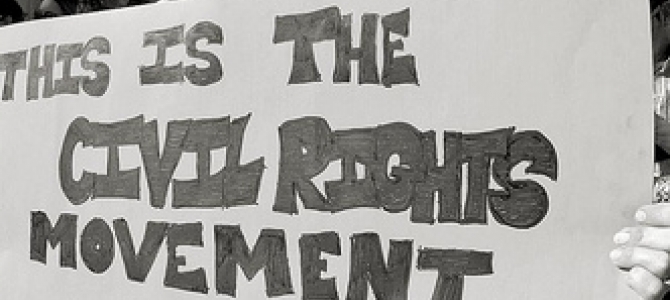 THIS IS THE
CIVIL RIGHTS
MOVEMENT